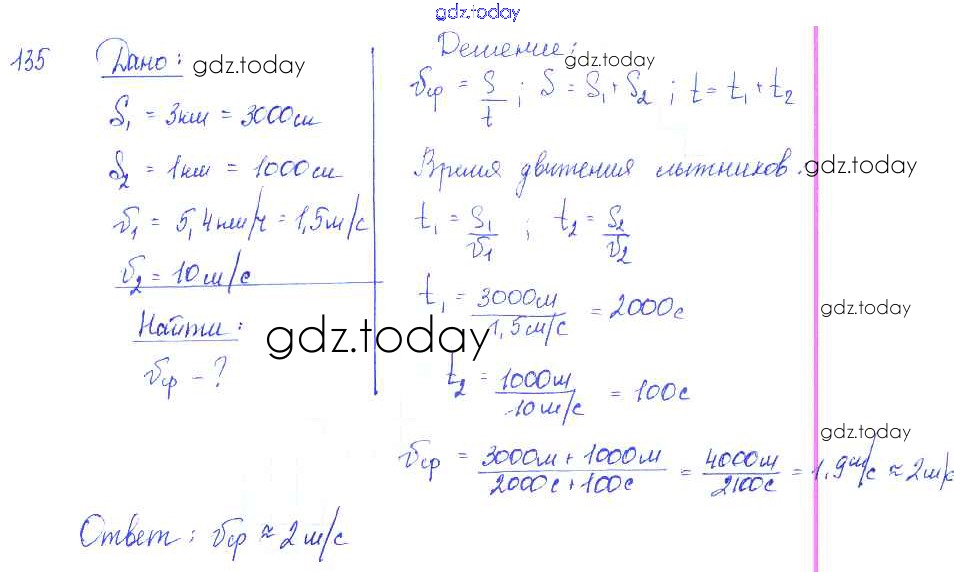 gdz.today
135 Дано: gdz.today
S₁ = 3км = 3000м
S₂ = 1км = 1000м
v₁ = 5,4км/ч = 1,5м/с
v₂ = 10м/с
Найти:
vср - ?
gdz.today
Решение:
gdz.today
vср = S/t ; S = S₁ + S₂ ; t = t₁ + t₂
Время движения лытников. gdz.today
t₁ = S₁/v₁ ; t₂ = S₂/v₂
t₁ = 3000м/1,5м/с = 2000с
gdz.today
t₂ = 1000м/10м/с = 100с
gdz.today
vср = 3000м + 1000м/2000с + 100с = 4000м/2100с = 1,9м/с ≈ 2м/с
Ответ: vср ≈ 2м/с